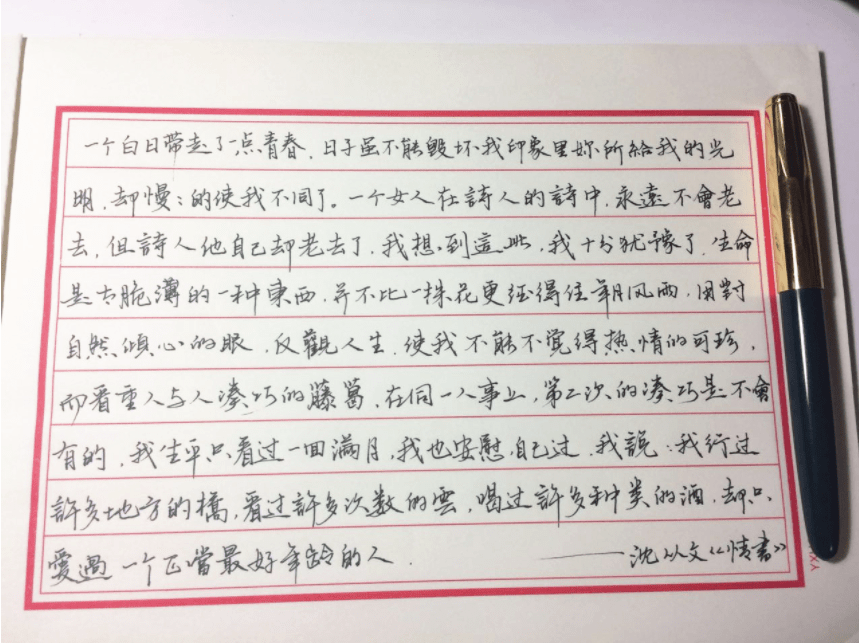 一个白日带走了一点青春，日子虽不能毁坏我印象里妳所給我的光
明，却慢：的使我不同了。一个女人在詩人的詩中，永遠不會老
去，但詩人他自己却老去了，我想到這些，我十分犹豫了，生命
是太脆薄的一种東西，并不比一株花更经得住年月风雨，用對
自然傾心的眼，反觀人生，使我不能不觉得热情的可珍，
而看重人与人凑巧的藤葛，在同一人事上，第二次的凑巧是不會
有的，我生平只看过一回满月，我也安慰自己过，我說：我行过
許多地方的橋，看过許多次数的雲，喝过許多种类的酒，却只
愛過一个正當最好年龄的人．——沈从文《情書》